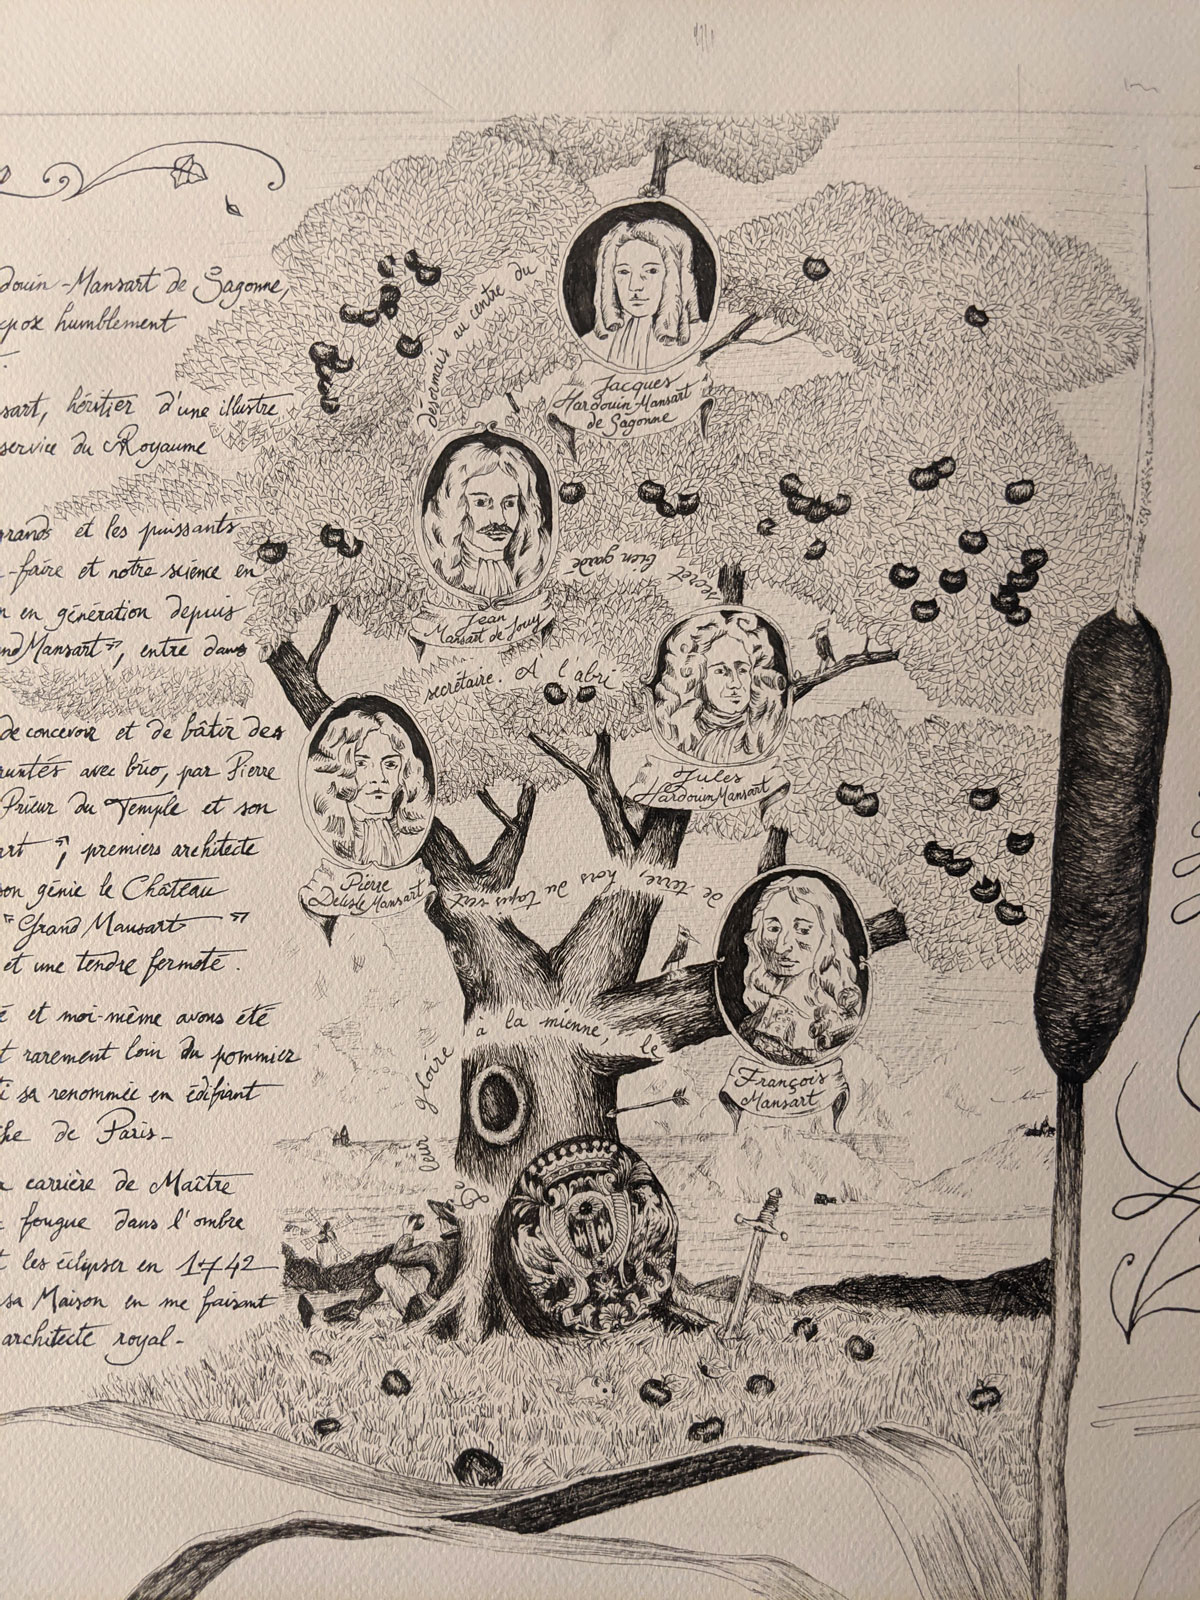 douin-Mansart de Sagonne,
humblement
sart, héritier d'une illustre
service du Royaume
grands et les puissants
-faire et notre science en
n en génération depuis
nd Mansart", entre dans
de concevoir et de bâtir des
runtés avec brio, par Pierre
Prieur du Temple et son
art ", premiers architecte
son génie le Château
"Grand Mansart"
et une tendre fermeté.
é et moi-même avons été
t rarement loin du pommier
i sa renommée en édifiant
he de Paris-
carrière de Maître
fougue dans l'ombre
t les éclipser en 1742
sa Maison en me faisant
architecte royal-
désormais au centre du
Jacques
Hardouin Mansart
de Sagonne
Jean
Mansart de Jouy
bien gardé
secret
secrétaire. À l'abri
Jules
Hardouin Mansart
Pierre
Delisle Mansart
de terre, hors du temps
François
Mansart
De leur gloire à la mienne, le